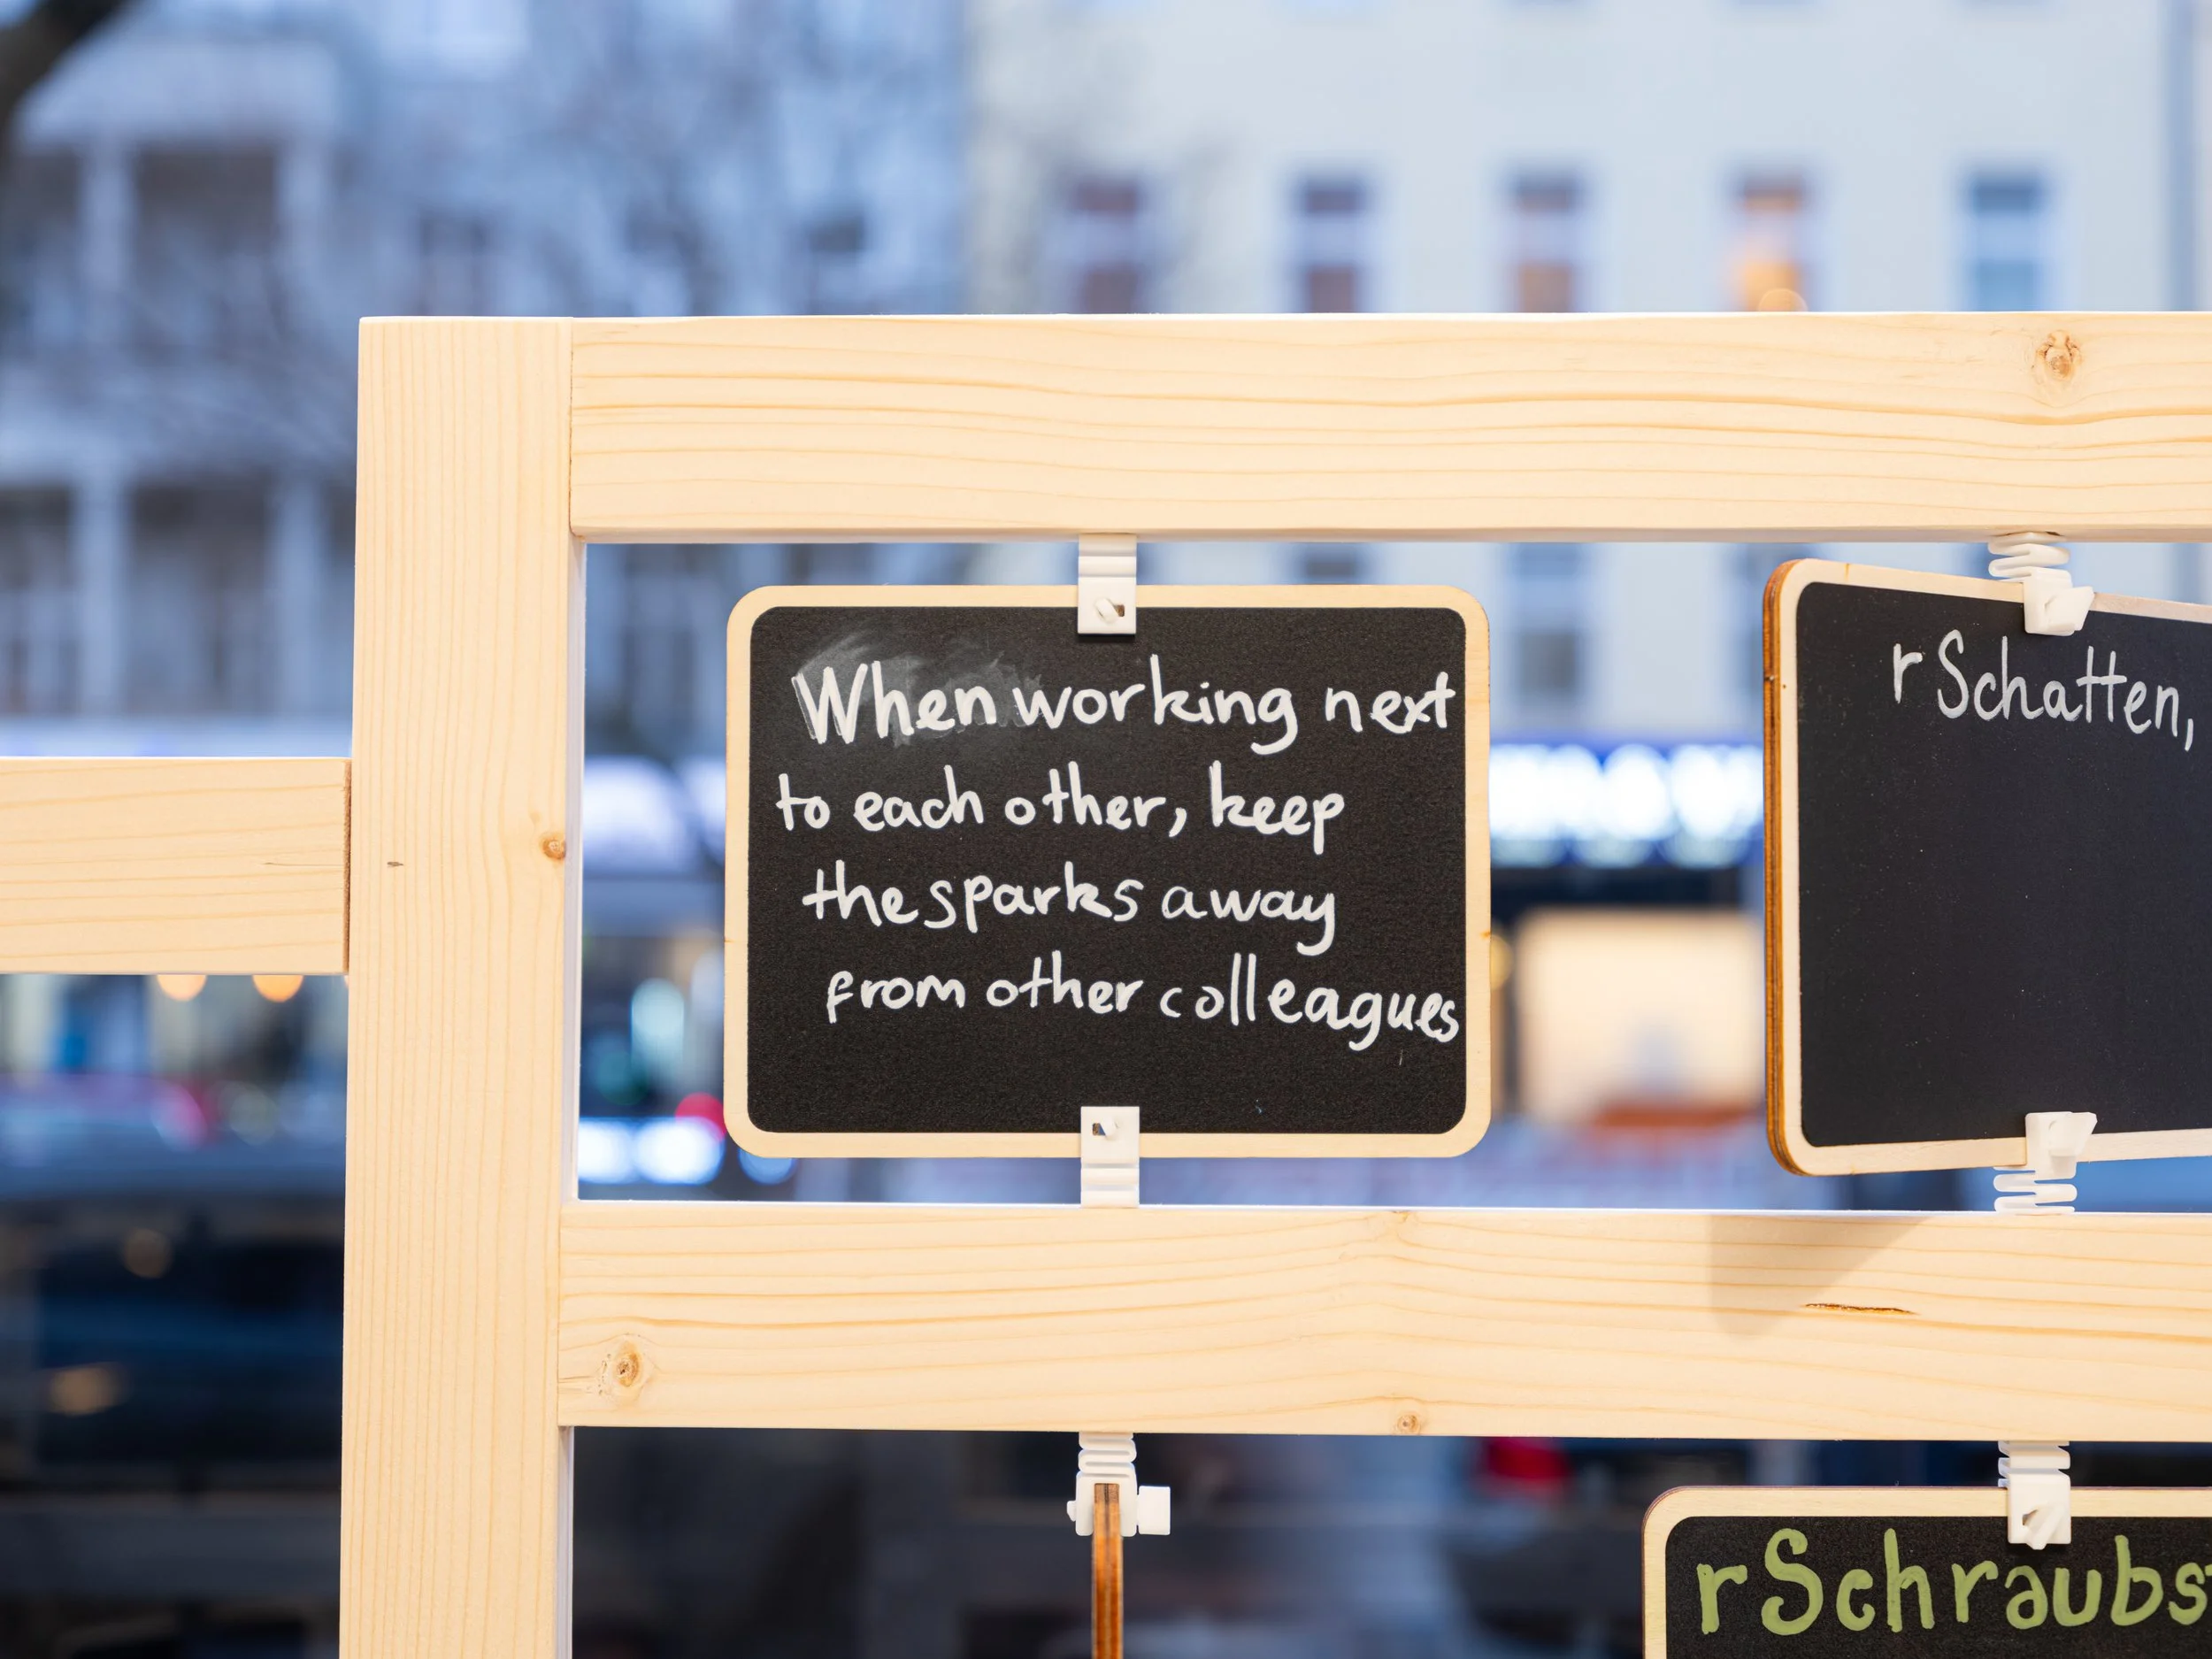 When working next
to each other, keep
the sparks away
from other colleagues
r Schatten,
rSchraubs